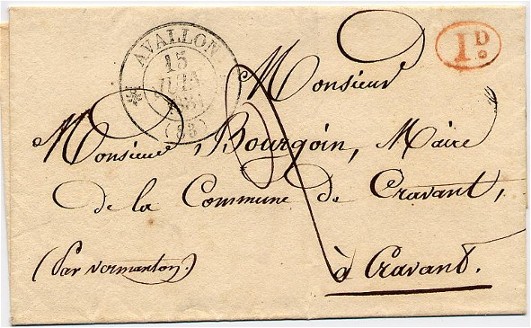 AVALLON
15
JUIN
(83)
1D
Monsieur
Monsieur, Bourgoin, Maire
de la Commune de Cravant,
à Cravant.
(Par Vermanton.)